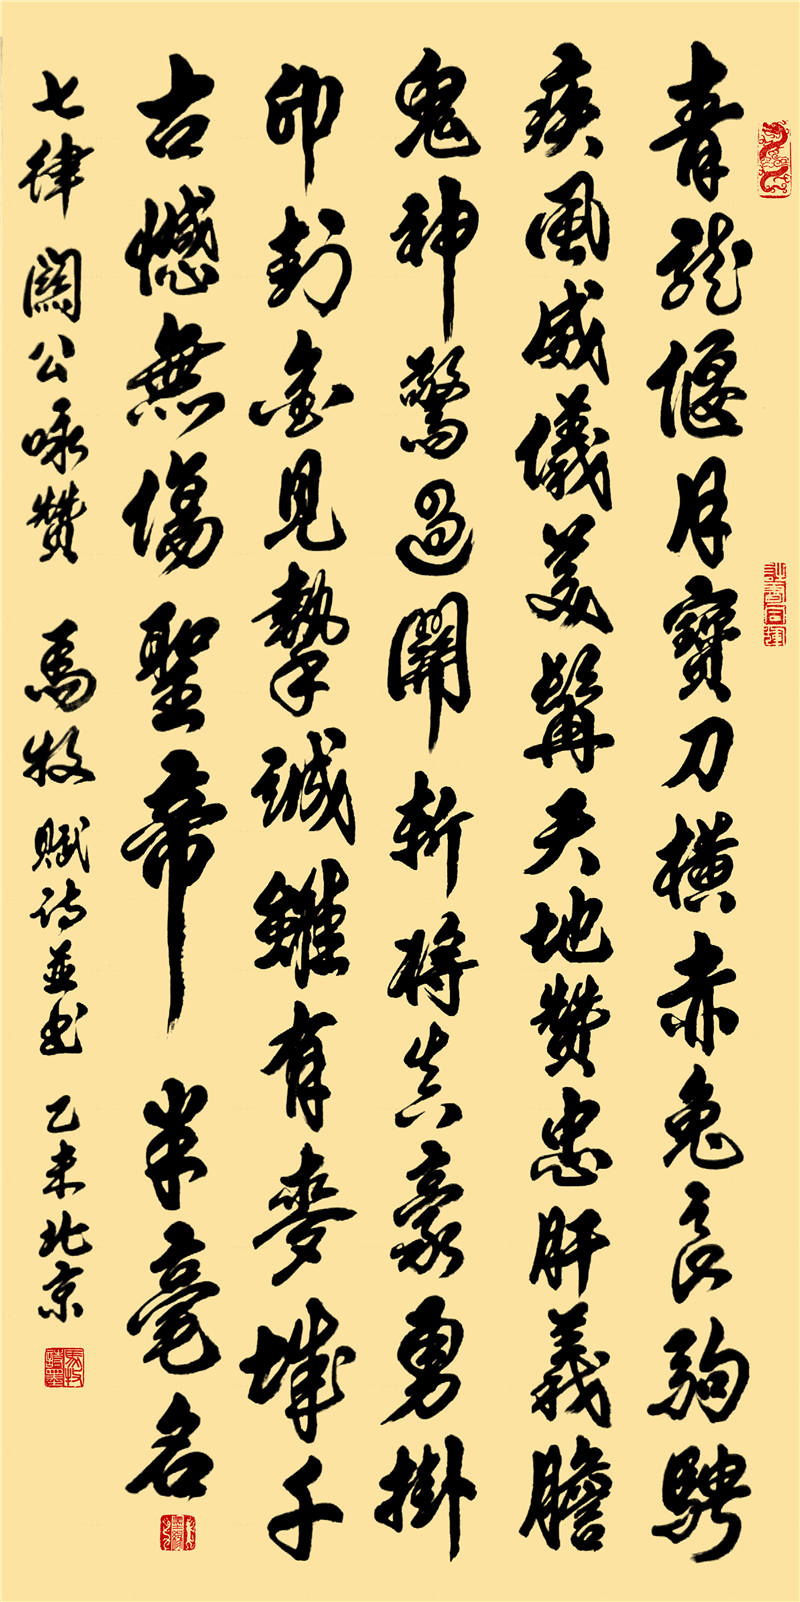 青龍偃月寶刀橫赤兔良駒騁
疾風威儀美髯天地贊忠肝義膽
鬼神驚過關斬將真豪勇掛
印封金見摯誠雖有麥城千
古憾無傷聖帝半毫名
七律 關公咏贊 馬牧賦詩並书 乙未北京